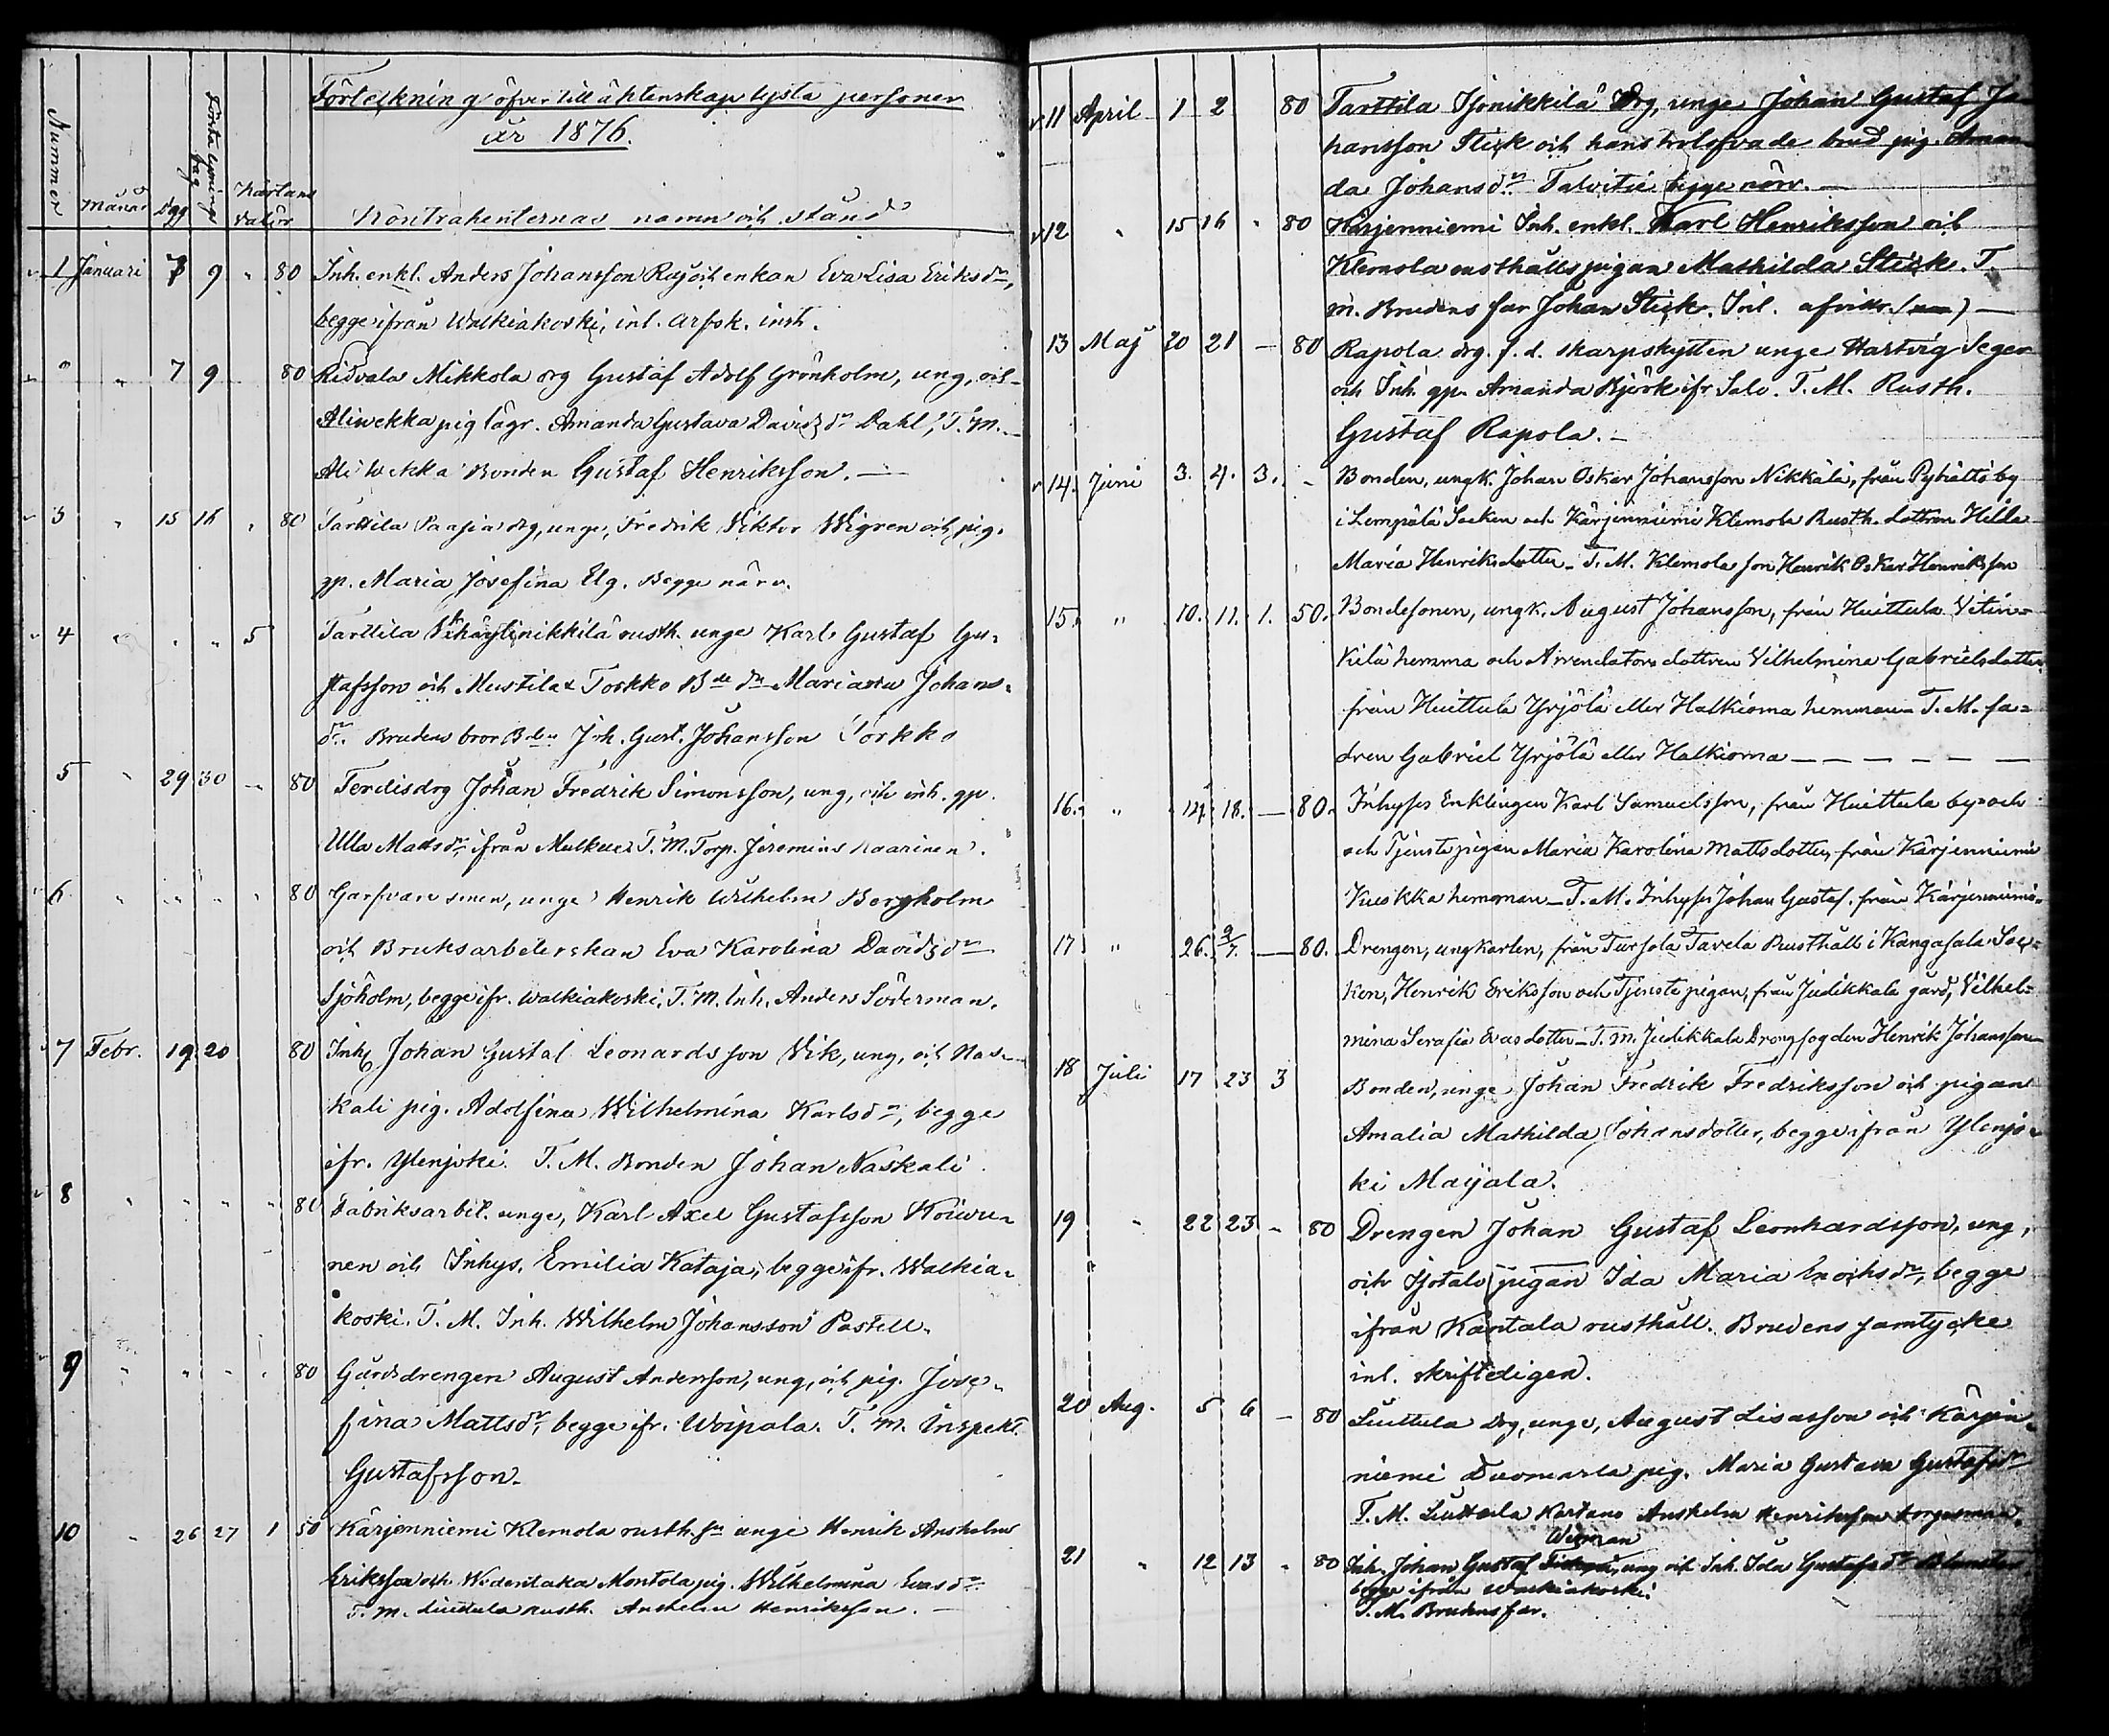 Förteckning öfver till äktenskap lysta personer
år 1876.
Nummer Månad Dag Första lysnings dag Kartans valör Kontrahenternas namn och stånd
1 Januari 7 9 " 80 Inh. enkl. Anders Johansson Raj och enkan Eva Lisa Eriksdr,
begge ifrån Walkiakoski, inl. arfsk. inst.
" " 7 9 80 Ridvala Mikkola drg Gustaf Adolf Grönholm, ung, och
Aliwekka pig lägr. Amanda Gustava Davidsdr Dahl, T. M.
Ali Wekka Bonden Gustaf Henriksson. —
3 " 15 16 " 80 Tarttila Paajia drg, unge, Fredrik Viktor Wigren och pig.
gp. Maria Josefina Elg. Begge närv.
4 " " " 5 Tarttila nikkilä rusth. unge Karl Gustaf Gu-
stafsson och Mustila Torkko Bde dr Maria Johans-
dr. Brudens bror Bden Joh. Gust. Johansson Torkko
5 " 29 30 " 80 Ferdisdrg Johan Fredrik Simonsson, ung, och inh. gp.
Ulla Matsdr, ifrån T. M. Torp. Jeremias Kaarinen.
6 " " " " 80 Garfvare smen, unge Henrik Wilhelm Bergholm
och Bruksarbeterskan Eva Karolina Davidsdr
Sjöholm, begge ifr. Walkiakoski, T. M. Inh. Anders Söderman.
7 Febr. 19 20 80 Inh. Johan Gustaf Leonardsson Vik, ung, och Nas-
kali pig. Adolfina Wilhelmina Karlsdr, begge
ifr. Ylenjoki. T. M. Bonden Johan Naskali.
8 " " " " 80 Fabriksarbet. unge, Karl Axel Gustafsson Koivu-
nen och Inhys. Emilia Kataja, begge ifr. Walkia-
koski. T. M. Inh. Wilhelm Johansson Pastell.
9 " " " " 80 Gårdsdrengen August Andersson, ung, och pig. Jose-
fina Mattsdr, begge ifr. Woipala. T. M. Inspekt.
Gustafsson.
10 " 26 27 1 50 Kärjenniemi Klemola rusth. sn unge Henrik Anshelm
Eriksson och Wedentaka Montola pig. Wilhelmina Evasdr
T. M. Liuttula rusth. Anshelm Henriksson. —
11 April 1 2 80 Tarttila Tjonikkilä Drg, unge Johan Gustaf Jo-
hansson Stick och hans trolofvade brud pig. Aman-
da Johansdr Talvitie begge närv. —
12 " 15 16 " 80 Kärjenniemi Inh. enkl. Karl Henriksson och
Klemola rusthålls pigan Mathilda Stick. T.
M. Brudens far Johan Stick. Inl. afvittr. —
13 Maj 20 21 — 80 Rapola drg. f. d. skarpskytten unge Hartvig Seger
och Inh. gp. Amanda Björk ifr. Salo. T. M. Rusth.
Gustaf Rapola. —
14. Juni 3. 4. 3. - Bonden, ungk. Johan Oskar Johansson Nikkilä, från by
i Lempälä Socken och Kärjenniemi Klemola Rusth. dottren Hilda
Maria Henriksdotter — T. M. Klemola son Henrik Oskar Henriksson
15. " 10. 11. 1. 50. Bondesonen, ungk. August Johansson, från Huittula Vitin-
kilä hemma och Arrendators dottren Vilhelmina Gabrielsdotter
från Huittula Yrjölä eller Halkioma hemman — T. M. fa-
dren Gabriel Yrjölä eller Halkioma — — — — — —
16. " 17. 18. — 80. Inhyses Enklingen Karl Samuelsson, från Huittula by och
och Tjenste pigan Maria Karolina Mattsdotter, från Kärjenniemi
Kuskka hemman — T. M. Inhyses Johan Gustaf. från Kärjenniemi.
17 " 26. 2/7. — 80. Drengen, ungkarlen, från Tursola Tavela Rusthåll i Kangasala Soc-
ken, Henrik Eriksson och Tjenste pigan, från Judikkala gård, Vilhel-
mina Serafia Evasdotter — T. M. Judikkala Drengfogden Henrik Johansson
18 Juli 17 23 3 Bonden, unge Johan Fredrik Fredriksson och pigan
Amalia Mathilda Johansdotter, begge ifrån Ylenjo-
ki Maijala.
19 " 22 23 - 80 Drengen Johan Gustaf Leonhardsson, ung,
och pigan Ida Maria Enochsdr, begge
ifrån Kantala rusthåll. Brudens samtycke
inl. skriftligen.
20 Aug. 5 6 — 80 Liuttula Drg, unge, August Lisasson och Kärjen-
niemi Duomarla pig. Maria Gustava Gustafsdr
T. M. Liuttula Kartano Anshelm Henriksson
Wiman
21 " 12 13 " 80 Inh. Johan Gustaf ung och Inh. Ida Gustafsdr
begge ifrån Walkiakoski.
T. M. Brudens far.